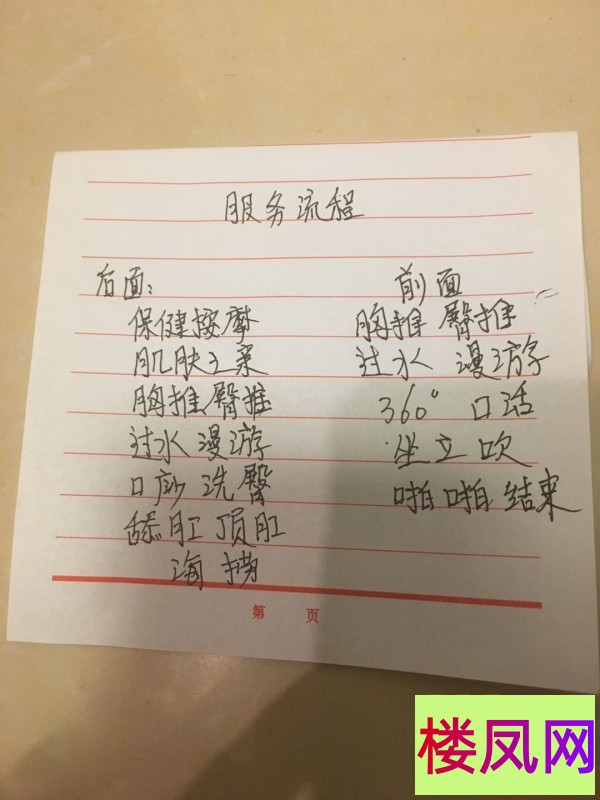 服务流程
后面：
保健按摩
肌肤之亲
胸推臀推
过水漫游
口疗洗臀
舔肛顶肛
海捞
前面
胸推臀推
过水漫游
360°口活
坐立吹
啪啪结束
第 页
楼凤网